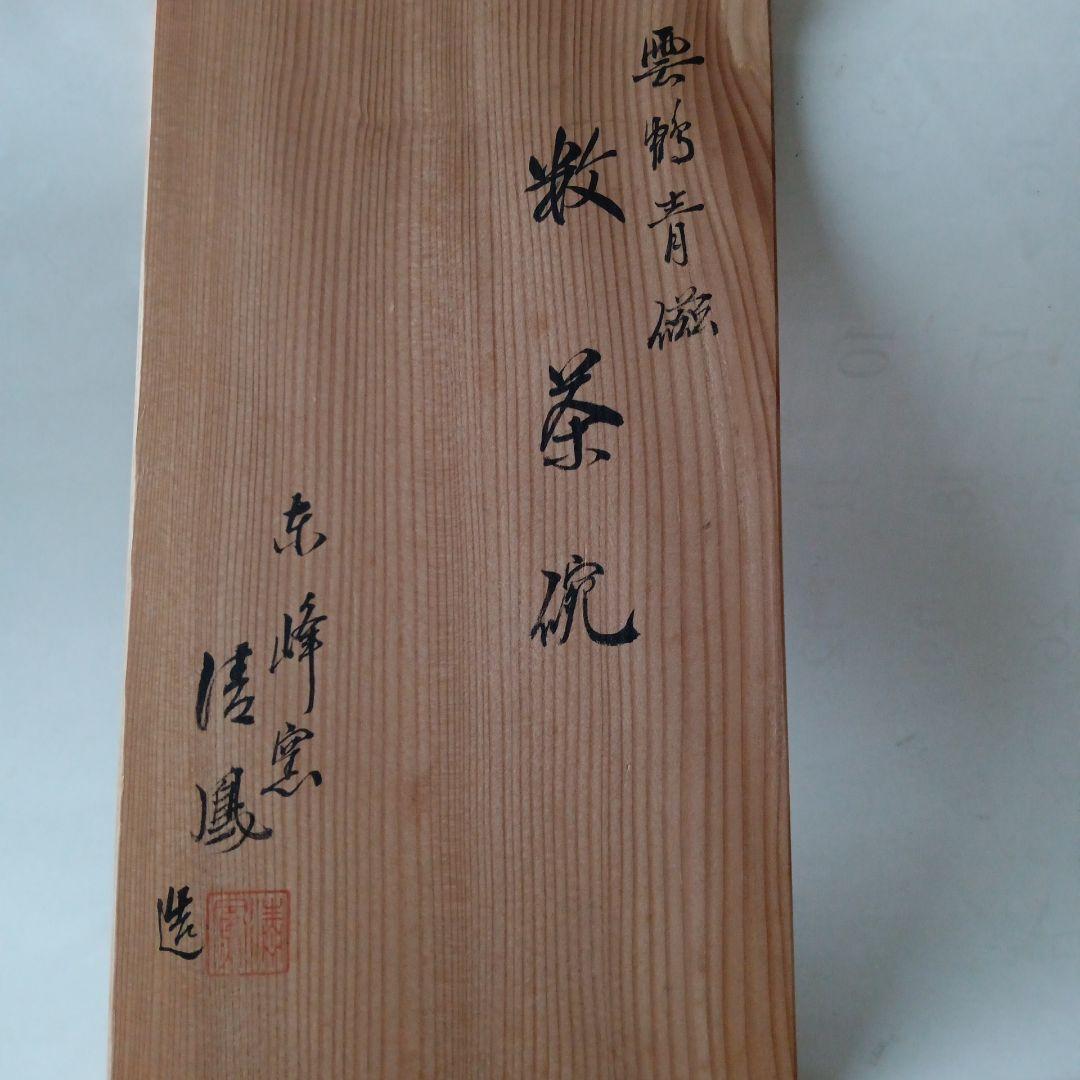 雲鶴青磁
数茶碗
東峰窯
清鳳
造